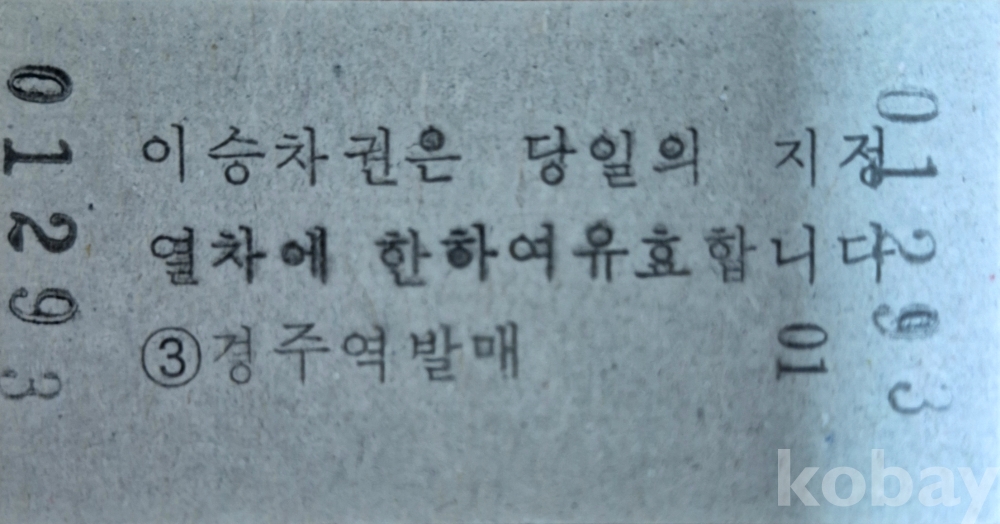 01293
이승차권은 당일의 지정
열차에 한하여유효합니다
③경주역발매
01
01293
kobay